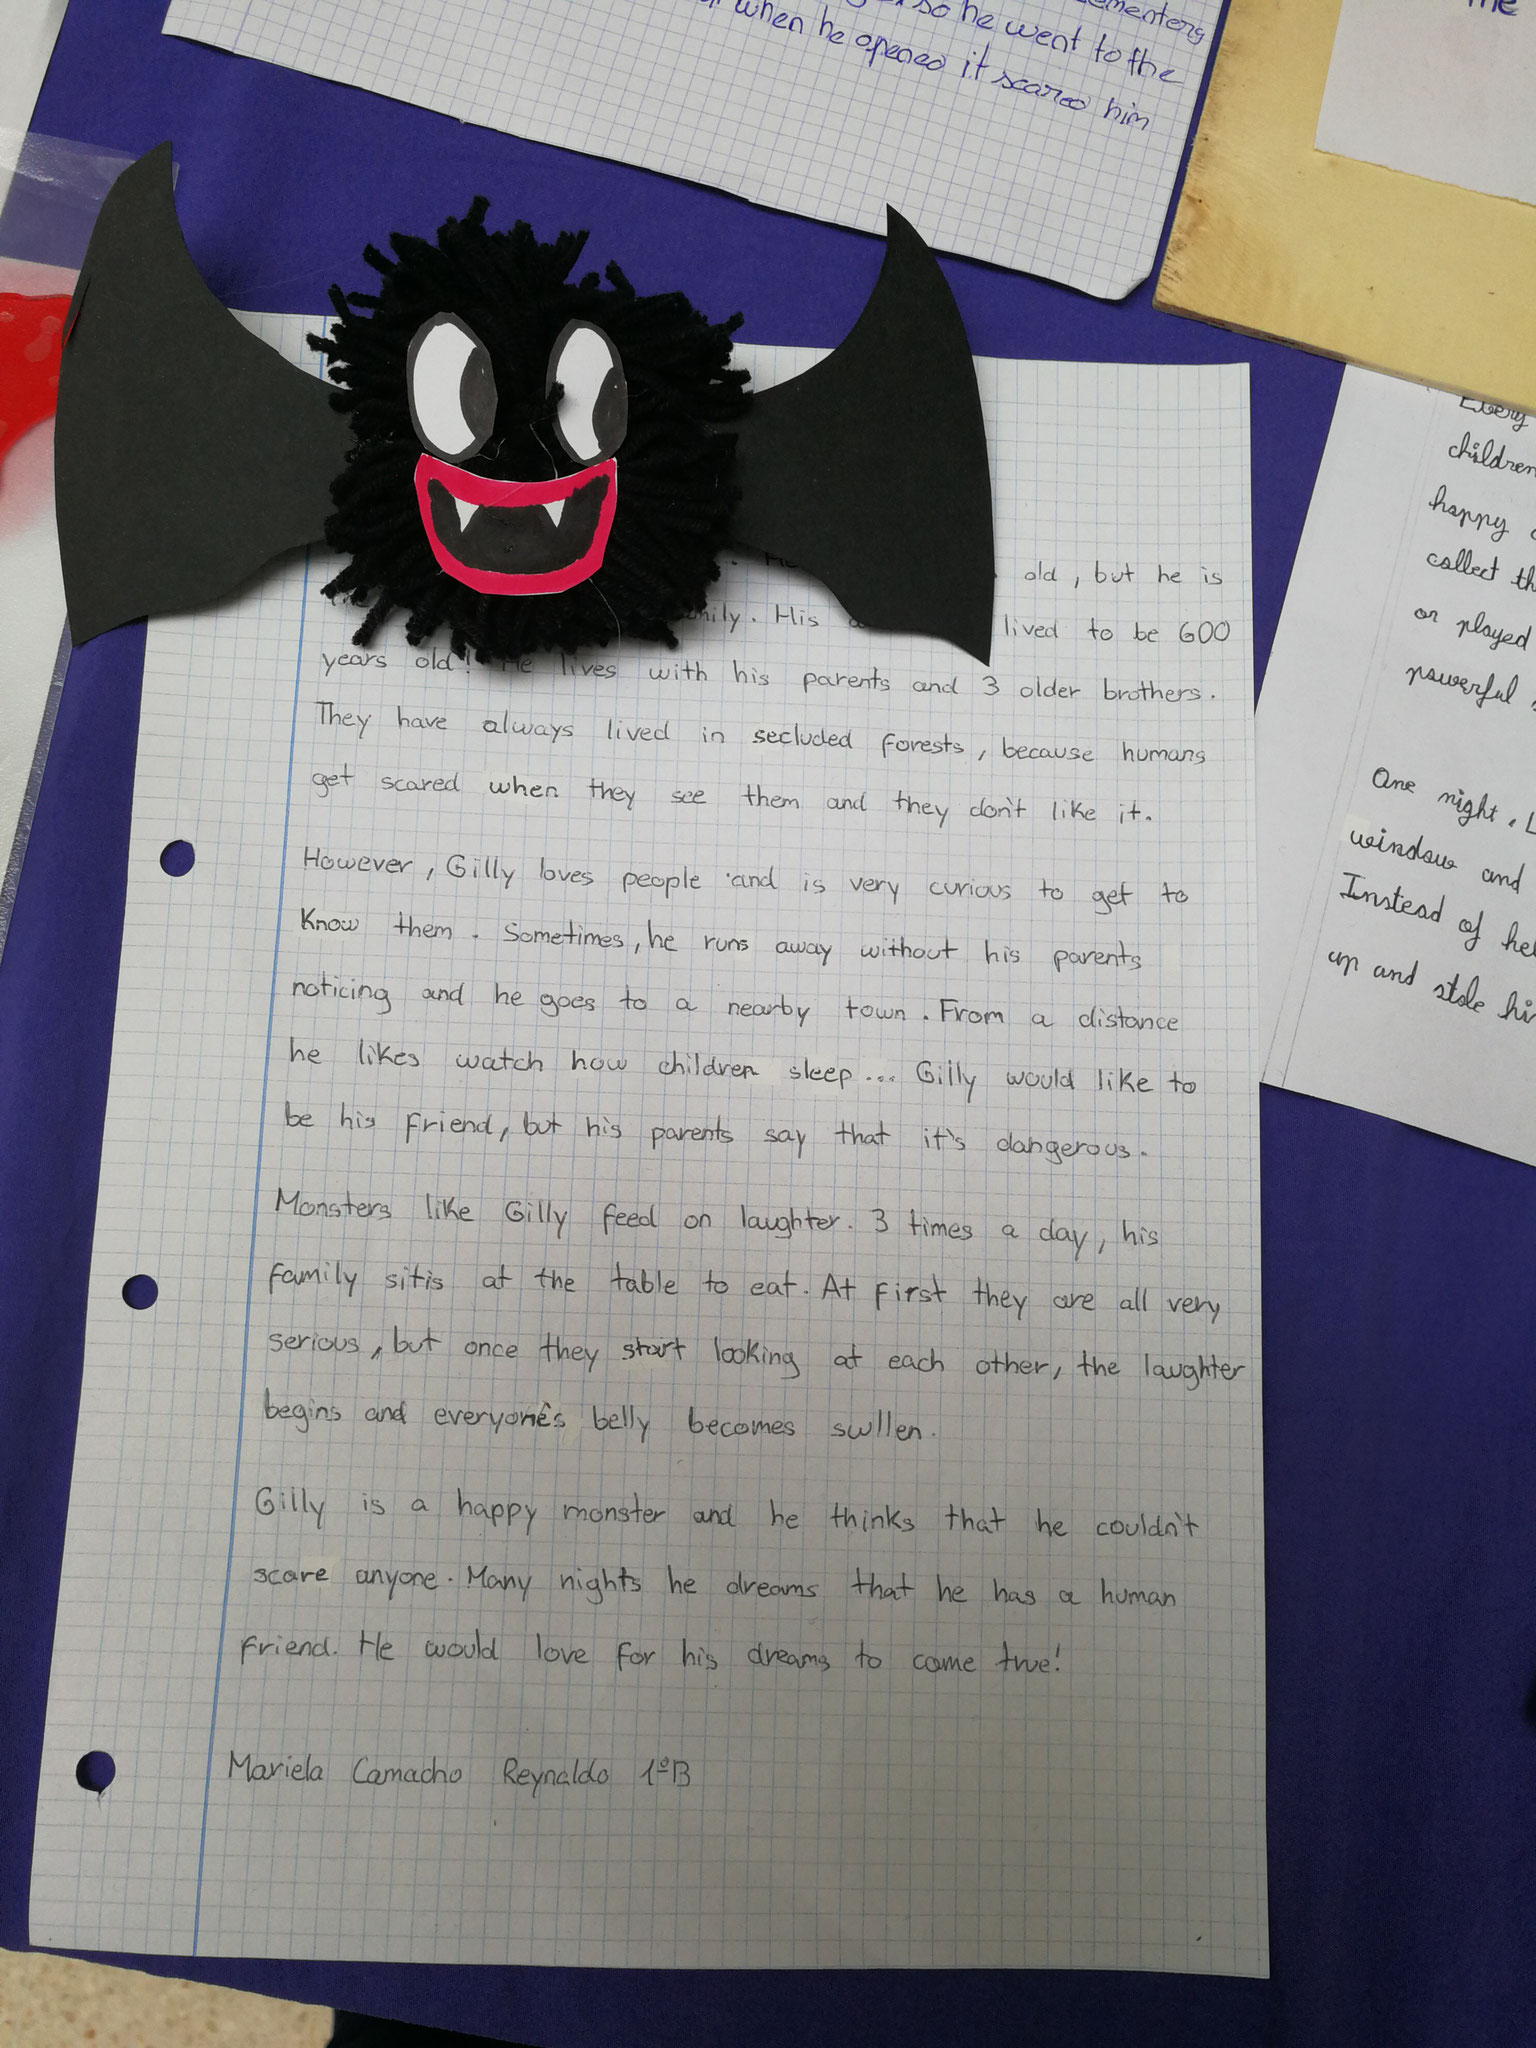 so he went to the
when he opened it scared him
the
old, but he is
His lived to be 600
years old! He lives with his parents and 3 older brothers.
They have always lived in secluded forests, because humans
get scared when they see them and they don't like it.
However, Gilly loves people and is very curious to get to
know them. Sometimes, he runs away without his parents
noticing and he goes to a nearby town. From a distance
he likes watch how children sleep... Gilly would like to
be his friend, but his parents say that it's dangerous.
Monsters like Gilly feed on laughter. 3 times a day, his
family sitis at the table to eat. At first they are all very
serious, but once they start looking at each other, the laughter
begins and everyone's belly becomes swllen.
Gilly is a happy monster and he thinks that he couldn't
scare anyone. Many nights he dreams that he has a human
friend. He would love for his dreams to come true!
Mariela Camacho Reynaldo 1ºB
Every
children
happy
collect
or played
powerful
One night,
window and
Instead of
up and stole